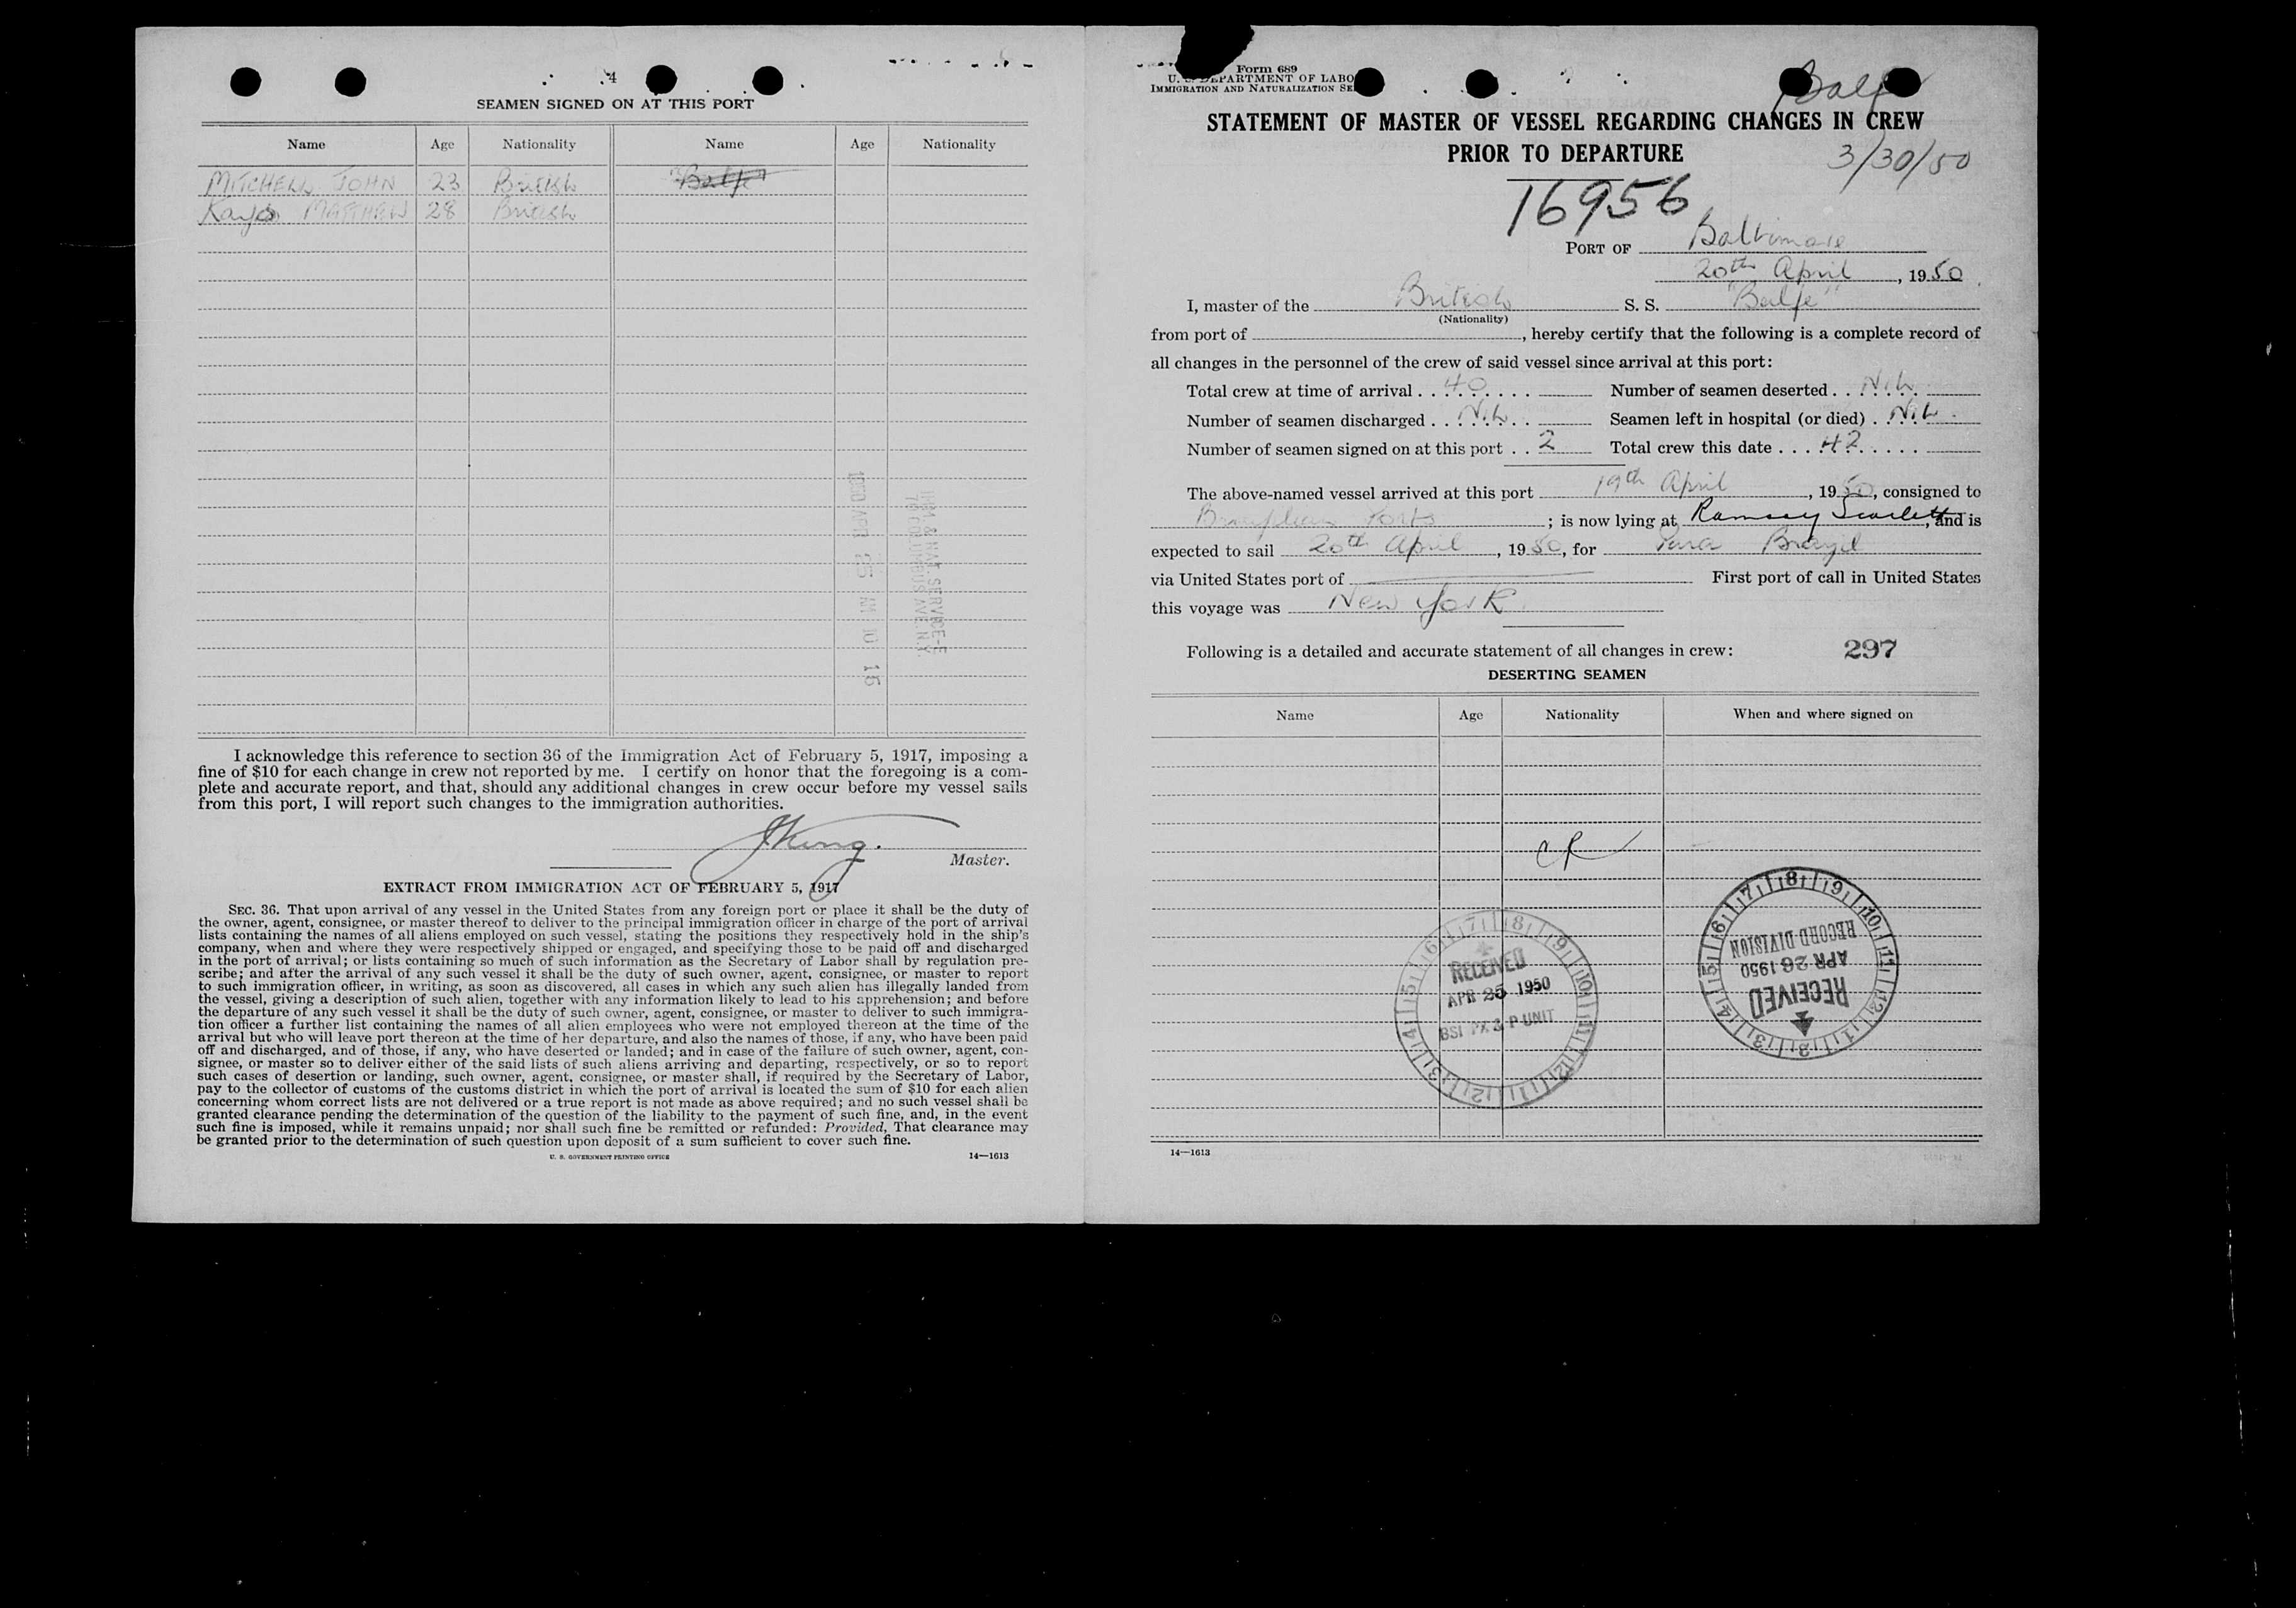 4
SEAMEN SIGNED ON AT THIS PORT
Name Age Nationality Name Age Nationality
MITCHELL JOHN 23 British "Balfe"
MATTHEW 28 British
1950 APR 25 AM 10 15
IMM & NAT. SERVICE-E
70 COLUMBUS AVE. N.Y.
I acknowledge this reference to section 36 of the Immigration Act of February 5, 1917, imposing a
fine of $10 for each change in crew not reported by me. I certify on honor that the foregoing is a com-
plete and accurate report, and that, should any additional changes in crew occur before my vessel sails
from this port, I will report such changes to the immigration authorities.
JKing.
Master.
EXTRACT FROM IMMIGRATION ACT OF FEBRUARY 5, 1917
SEC. 36. That upon arrival of any vessel in the United States from any foreign port or place it shall be the duty of
the owner, agent, consignee, or master thereof to deliver to the principal immigration officer in charge of the port of arrival
lists containing the names of all aliens employed on such vessel, stating the positions they respectively hold in the ship's
company, when and where they were respectively shipped or engaged, and specifying those to be paid off and discharged
in the port of arrival; or lists containing so much of such information as the Secretary of Labor shall by regulation pre-
scribe; and after the arrival of any such vessel it shall be the duty of such owner, agent, consignee, or master to report
to such immigration officer, in writing, as soon as discovered, all cases in which any such alien has illegally landed from
the vessel, giving a description of such alien, together with any information likely to lead to his apprehension; and before
the departure of any such vessel it shall be the duty of such owner, agent, consignee, or master to deliver to such immigra-
tion officer a further list containing the names of all alien employees who were not employed thereon at the time of the
arrival but who will leave port thereon at the time of her departure, and also the names of those, if any, who have been paid
off and discharged, and of those, if any, who have deserted or landed; and in case of the failure of such owner, agent, con-
signee, or master so to deliver either of the said lists of such aliens arriving and departing, respectively, or so to report
such cases of desertion or landing, such owner, agent, consignee, or master shall, if required by the Secretary of Labor,
pay to the collector of customs of the customs district in which the port of arrival is located the sum of $10 for each alien
concerning whom correct lists are not delivered or a true report is not made as above required; and no such vessel shall be
granted clearance pending the determination of the question of the liability to the payment of such fine, and, in the event
such fine is imposed, while it remains unpaid; nor shall such fine be remitted or refunded: Provided, That clearance may
be granted prior to the determination of such question upon deposit of a sum sufficient to cover such fine.
U. S. GOVERNMENT PRINTING OFFICE 14—1613
Form 689
U. S. DEPARTMENT OF LABO
IMMIGRATION AND NATURALIZATION SE
Balfe
STATEMENT OF MASTER OF VESSEL REGARDING CHANGES IN CREW
PRIOR TO DEPARTURE
3/30/50
16956
PORT OF Baltimore
20th April, 1950
I, master of the British S. S. "Balfe"
(Nationality)
from port of , hereby certify that the following is a complete record of
all changes in the personnel of the crew of said vessel since arrival at this port:
Total crew at time of arrival 40 Number of seamen deserted NiL
Number of seamen discharged NiL Seamen left in hospital (or died) NiL
Number of seamen signed on at this port 2 Total crew this date 42
The above-named vessel arrived at this port 19th April, 1950, consigned to
Ports; is now lying at Ramsey Scarlett, and is
expected to sail 20th April, 1950, for Para Brazil
via United States port of First port of call in United States
this voyage was New York
Following is a detailed and accurate statement of all changes in crew: 297
DESERTING SEAMEN
Name Age Nationality When and where signed on
CR
RECEIVED
APR 25 1950
BSI PX & P UNIT
RECEIVED
APR 26 1950
RECORD DIVISION
14—1613